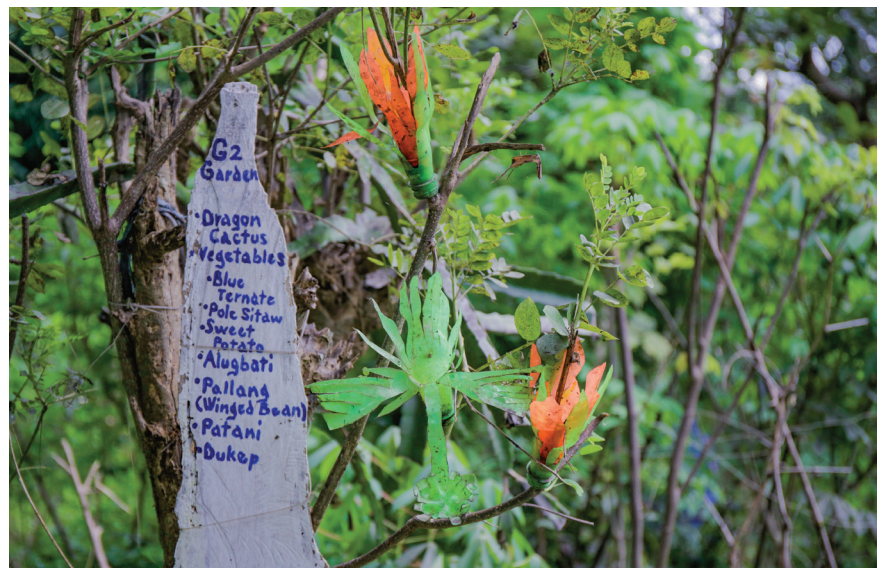 G2
Garden
• Dragon
Cactus
• Vegetables
• Blue
Ternate
• Pole Sitaw
• Sweet
Potato
• Alugbati
• Pallang
(Winged Bean)
• Patani
• Dukep